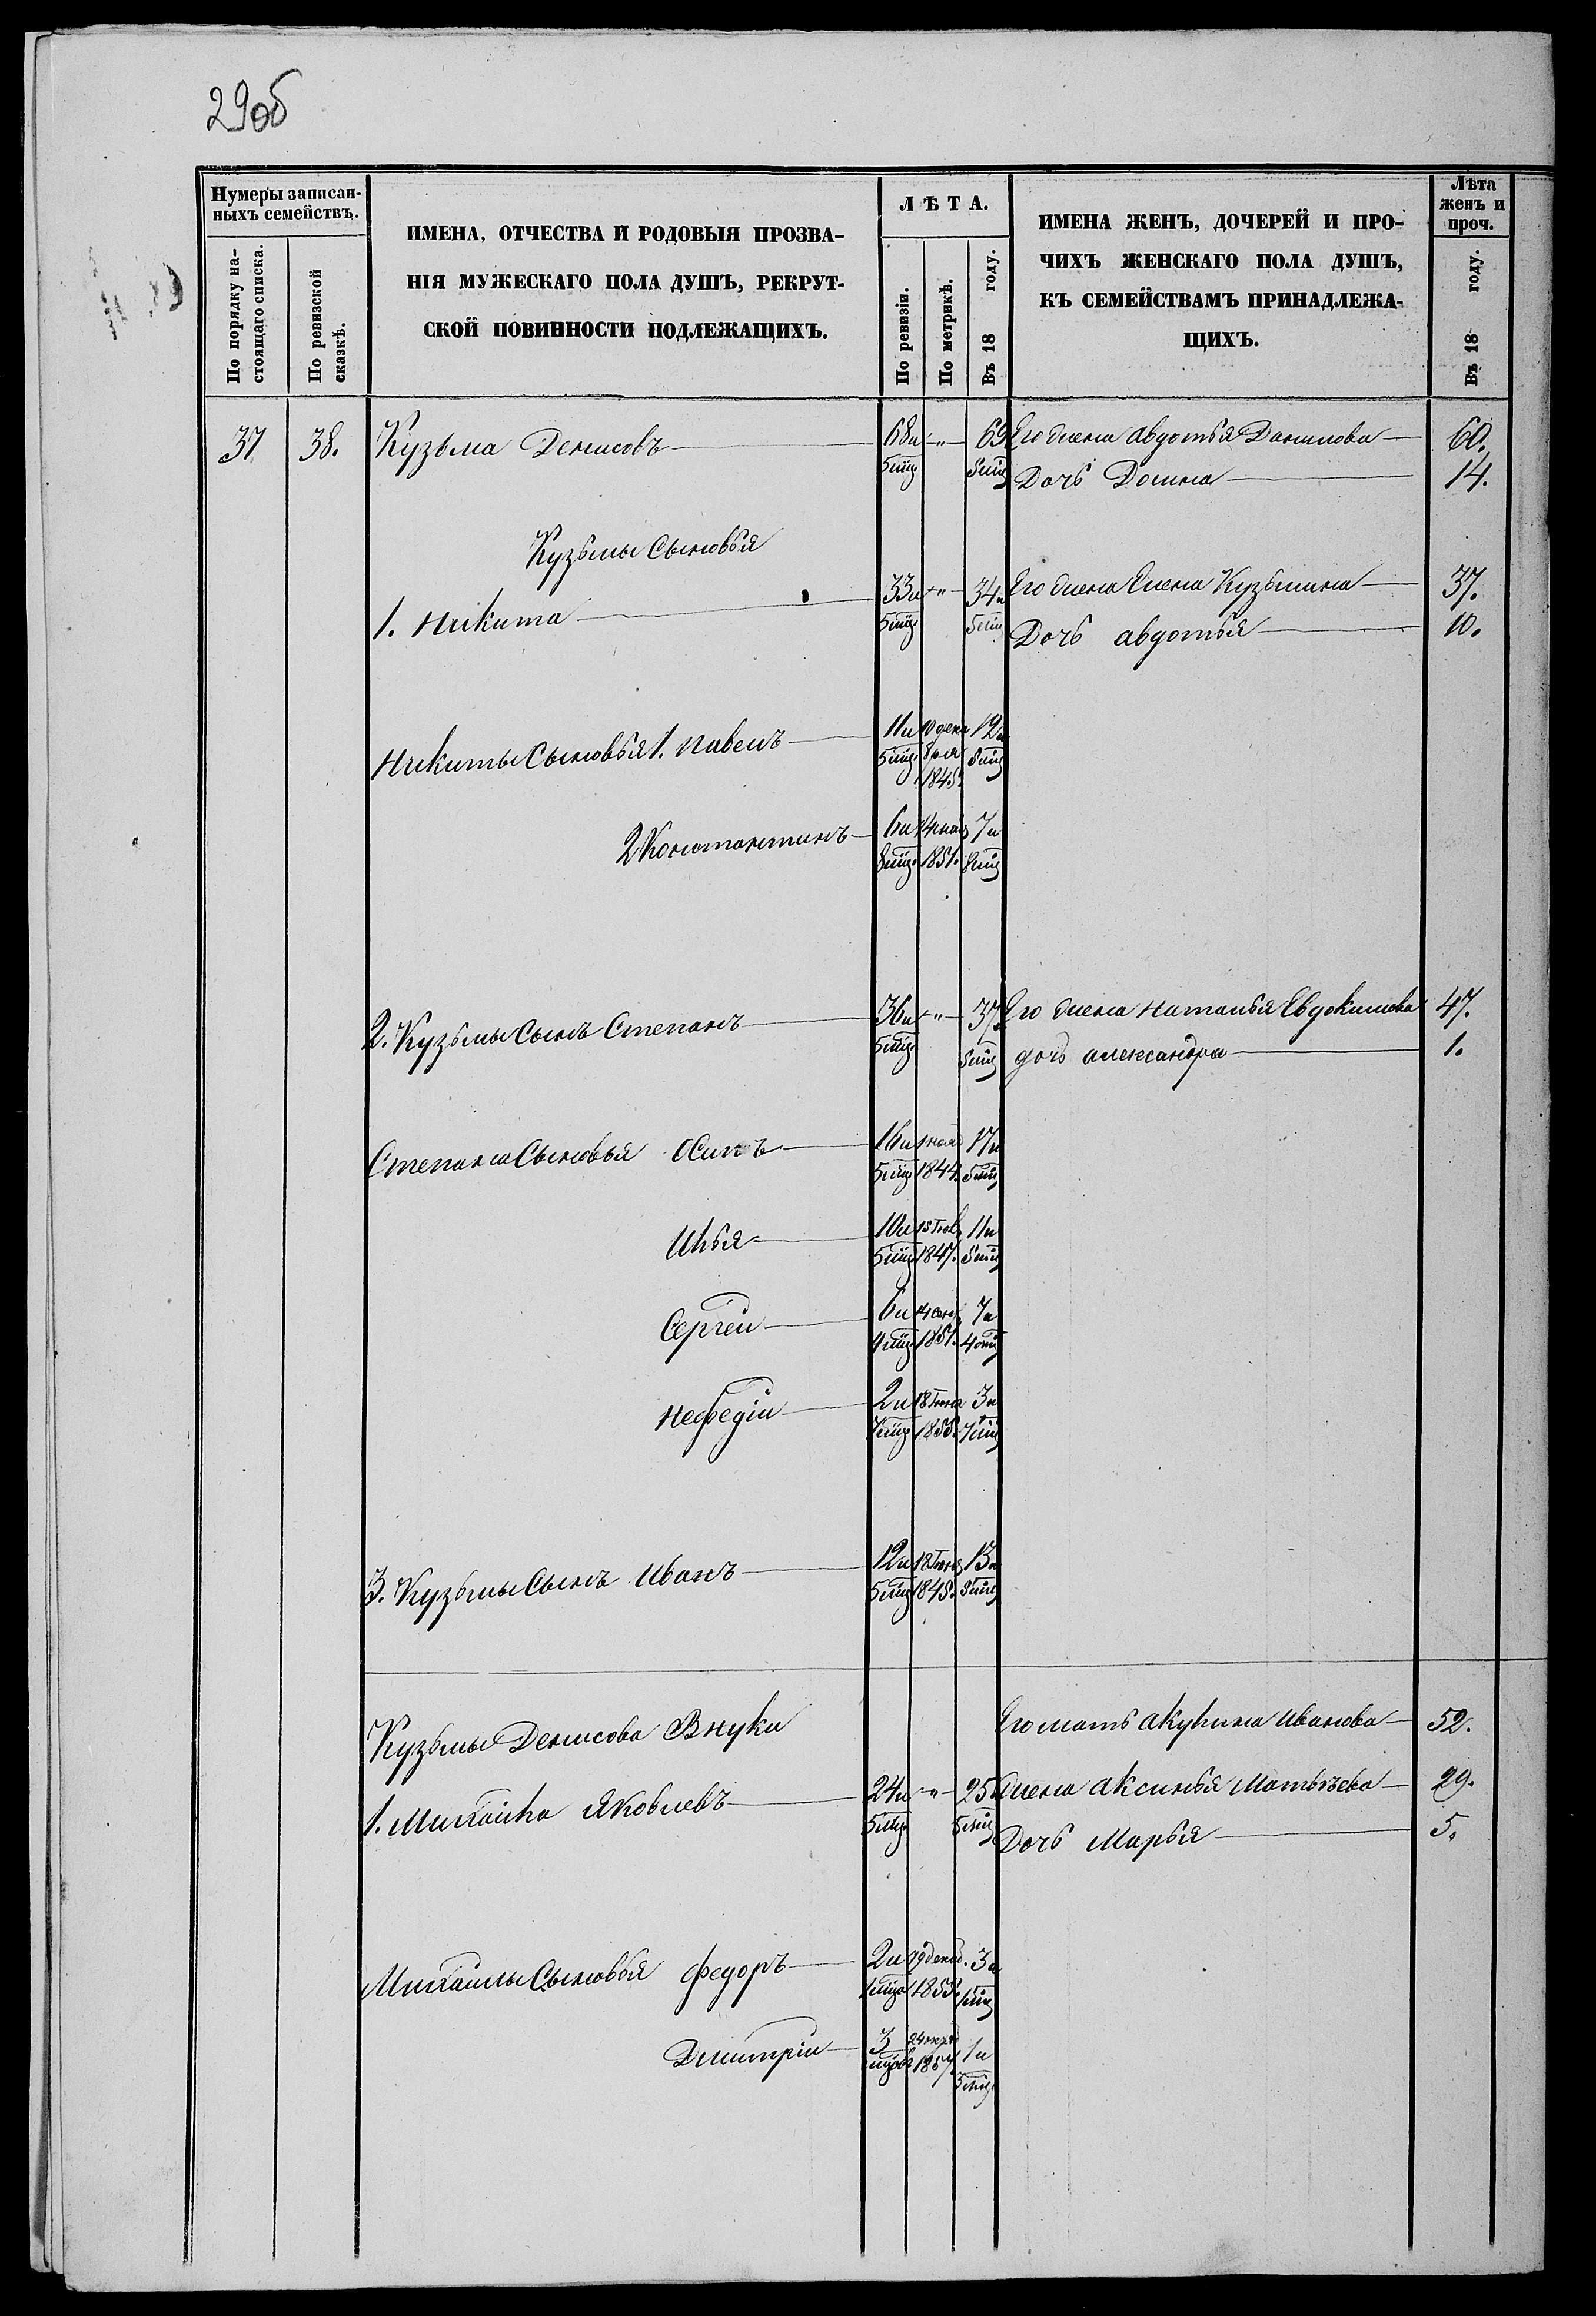 29об
Нумеры записан-
ныхъ семействъ.
По порядку на-
стоящаго списка.
По ревизской
сказкѣ.
ИМЕНА, ОТЧЕСТВА И РОДОВЫЯ ПРОЗВА-
НІЯ МУЖЕСКАГО ПОЛА ДУШЪ, РЕКРУТ-
СКОЙ ПОВИННОСТИ ПОДЛЕЖАЩИХЪ.
ЛѢТА.
По ревизіи.
По метрикѣ.
Въ 18 году.
ИМЕНА ЖЕНЪ, ДОЧЕРЕЙ И ПРО-
ЧИХЪ ЖЕНСКАГО ПОЛА ДУШЪ,
КЪ СЕМЕЙСТВАМЪ ПРИНАДЛЕЖА-
ЩИХЪ.
Лѣта
женъ и
проч.
Въ 18 году.
37 38. Кузьма Денисовъ 68и " 69 Его жена авдотья Данилова 60.
5мц 5мц Дочь Домна 14.
Кузьмы Сыновья
1. Никита 33и " 34и Его жена Елена Кузьмина 37.
5мц 5мц Дочь авдотья 10.
Никиты Сыновья 1. павелъ 11и 10 дека 12и
5мц бря 5мц
1845.
2 Константинъ 6и 7и
8мц 1851. 8мц
2. Кузьмы Сынъ Степанъ 36и " 37 Его жена наталья Евдокимова 47.
5мц 5мц дочь александра 1.
Степана Сыновья Осипъ 16и 17и
5мц 1844. 5мц
Илья 10и 11и
5мц 1847. 5мц
Сергей 6и 14 сен 7и
4мц 1851. 4мц
нефедій 2и 18 Іюня 3и
7мц 1855. 7мц
3. Кузьмы Сынъ Иванъ 12и 18 13и
5мц 1845. 5мц
Кузьмы Денисова Внуки Его мать акулина Иванова 52.
1. Михайла Яковлевъ 24и " 25и жена аксинья Матвѣева 29.
5мц 5мц Дочь Марья 5.
Михаилы Сыновья федоръ 2и дека. 3и
1мца 1855. 1мц
Дмитрій 3 24 1и
1857. 3мц